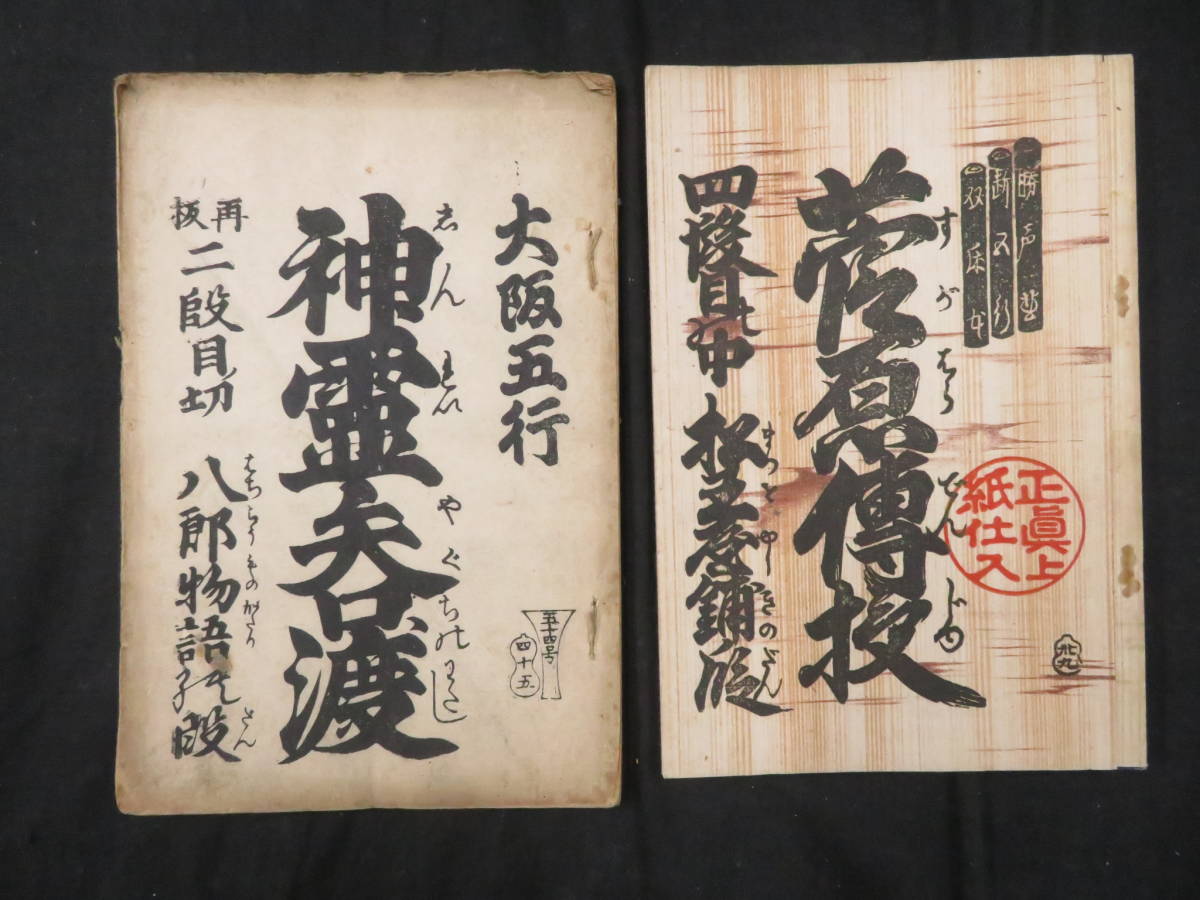 大阪五行
神靈矢口渡
しんれいやぐちのわたし
再板
二段目切 八郎物語の段
はちらうものがたり だん
五十四号
四十五
新五行
菅原傳授
すがはらでんじゆ
四段目の中 松王屋鋪段
やしきのだん
正眞上紙仕入
廿九